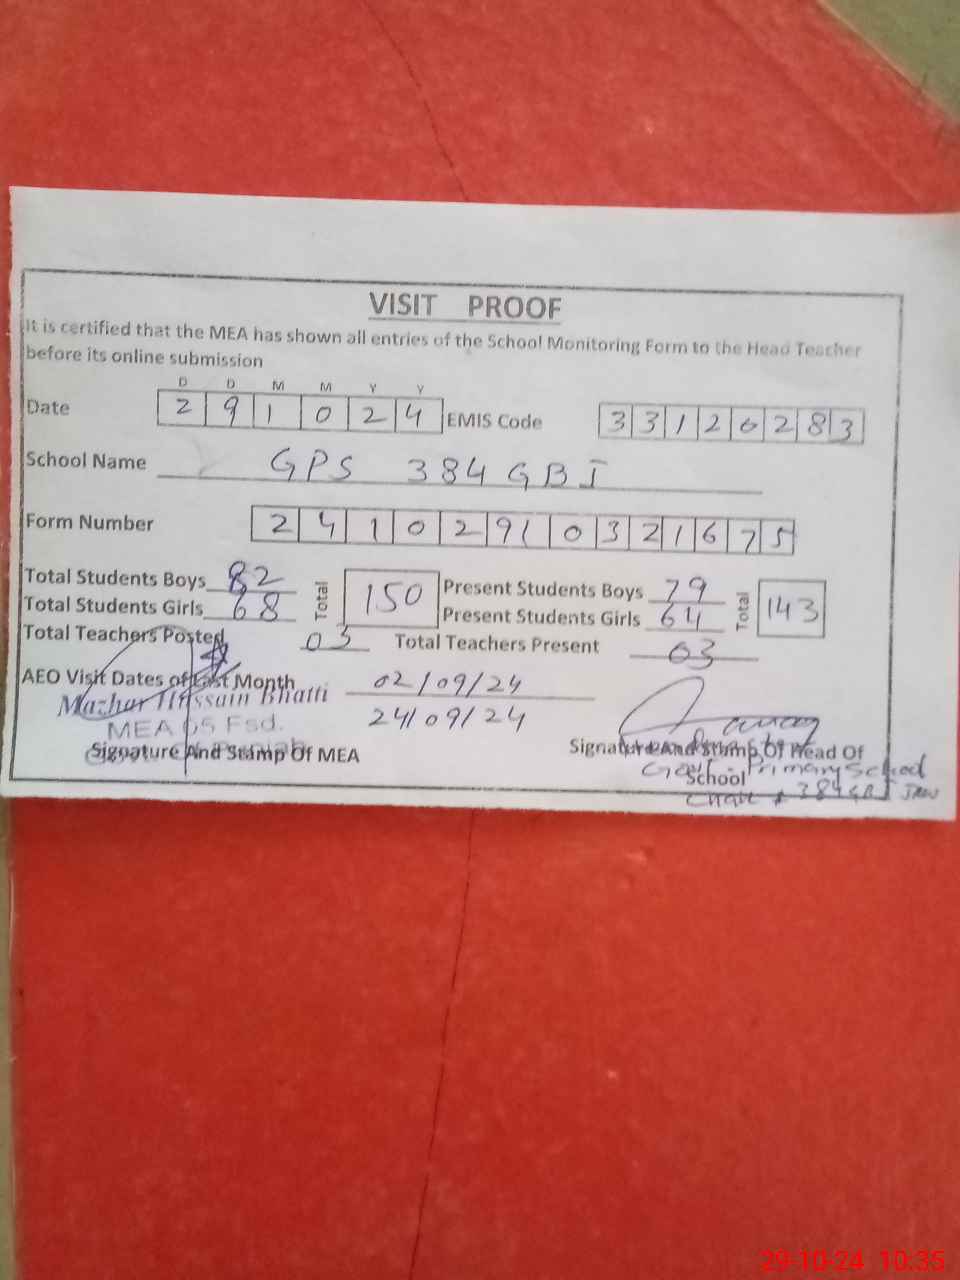 VISIT PROOF
It is certified that the MEA has shown all entries of the School Monitoring Form to the Head Teacher
before its online submission
D D M M Y Y
Date 2 9 1 0 2 4 EMIS Code 3 3 1 2 6 2 8 3
School Name GPS 384 GB J
Form Number 2 4 1 0 2 9 1 0 3 2 1 6 7 5
Total Students Boys 82 Total 150 Present Students Boys 79 Total 143
Total Students Girls 68 Present Students Girls 64
Total Teachers Posted 03 Total Teachers Present 03
AEO Visit Dates of Last Month 02/09/24
24/09/24
Mazhar Hussain Bhatti
MEA 05 Fsd.
Signature And Stamp Of MEA
Signature And Stamp Of Head Of
School
Govt. Primary School
Chak # 384 GB
29-10-24 10:35